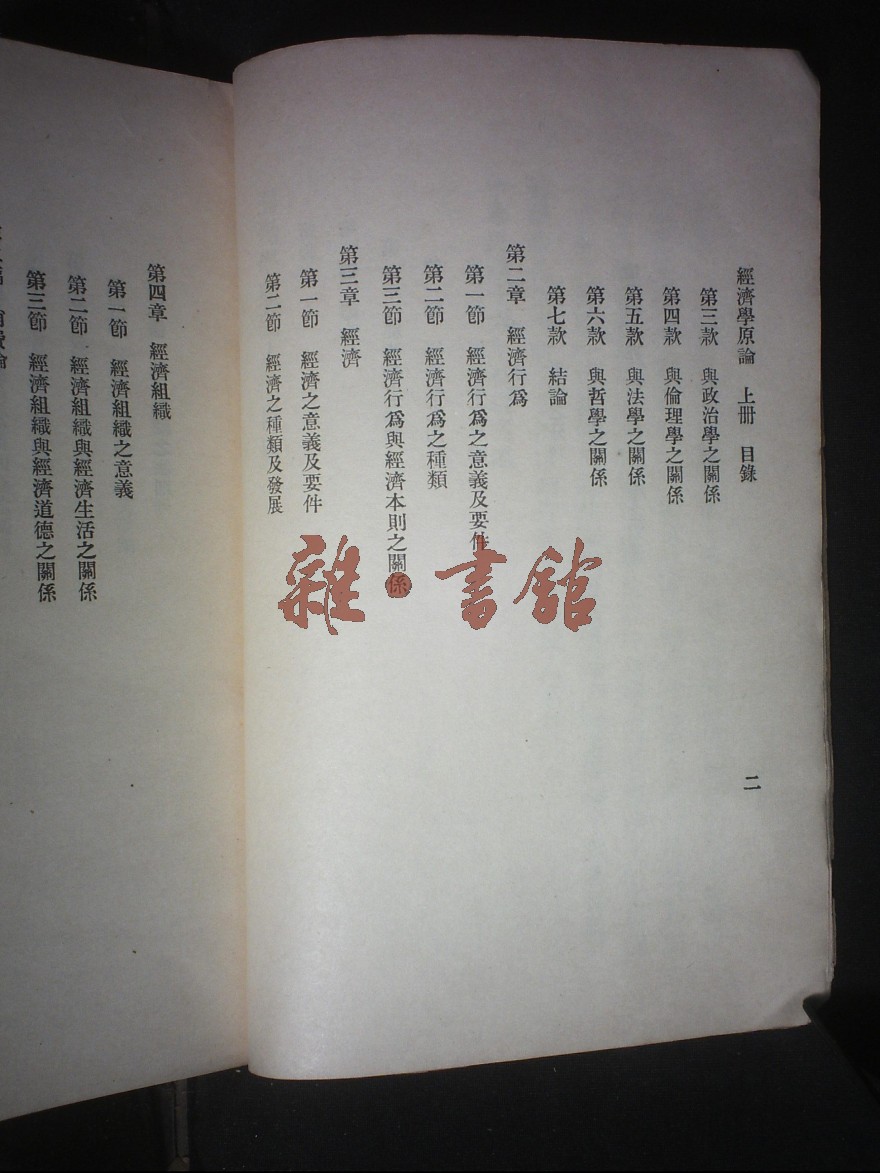 經濟學原論　上册　目錄
第三款　與政治學之關係
第四款　與倫理學之關係
第五款　與法學之關係
第六款　與哲學之關係
第七款　結論
第二章　經濟行爲
第一節　經濟行爲之意義及要件
第二節　經濟行爲之種類
第三節　經濟行爲與經濟本則之關係
第三章　經濟
第一節　經濟之意義及要件
第二節　經濟之種類及發展
二
第四章　經濟組織
第一節　經濟組織之意義
第二節　經濟組織與經濟生活之關係
第三節　經濟組織與經濟道德之關係
雜·書館